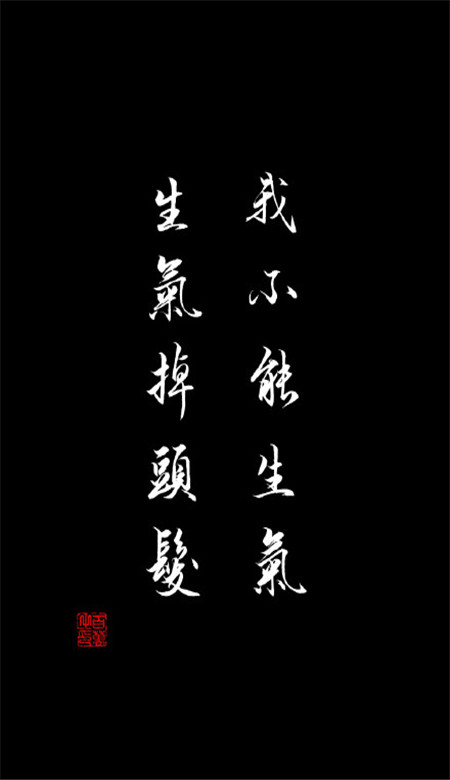 我不能生氣
生氣掉頭髮